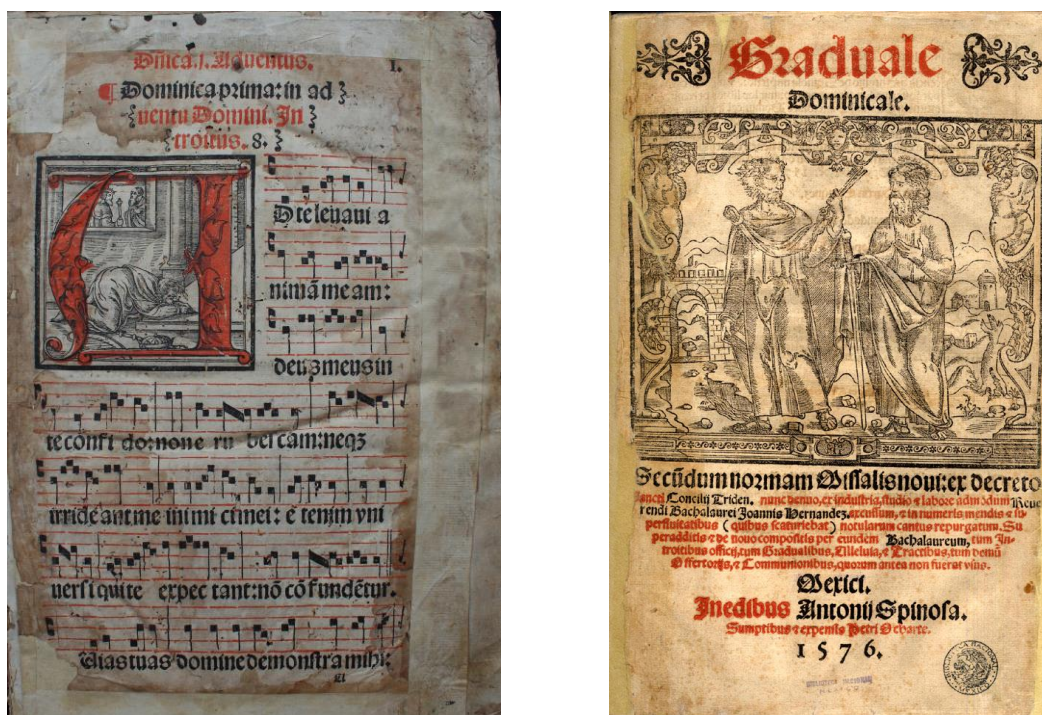 Dñica.j. Aduentus.
I.
¶ Dominica prima: in ad
uentu Domini. In
troitus. 8.
A
D te leuaui a
nimã me am:
deus meus in
te confi do: non e ru bes cam: neqꝫ
irride ant me inimi ci mei: e tenim vni
uersi qui te expec tant: nõ cõ fundẽtur.
Vias tuas domine demonstra mihi:
Graduale
Dominicale.
Secũdum normam Missalis noui: ex decreto
sancti Concilij Triden. nunc denuo, ex industria, studio ⁊ labore admodum Reue
rendi Bachalaurei Joannis Hernandez, excussum, ⁊ in numeris mendis ⁊ su
perfluitatibus (quibus scaturiebat) notularum cantus repurgatum. Su
peradditis ⁊ de nouo compositis per eundem Bachalaureum, tum In-
troitibus officij, tum Gradualibus, Alleluia, ⁊ Tractibus, tum demũ
Offertorijs, ⁊ Communionibus, quorum antea non fuerat vsus.
Mexici.
In edibus Antonij Spinosa.
Sumptibus ⁊ expensis Petri Ocharte.
1576.